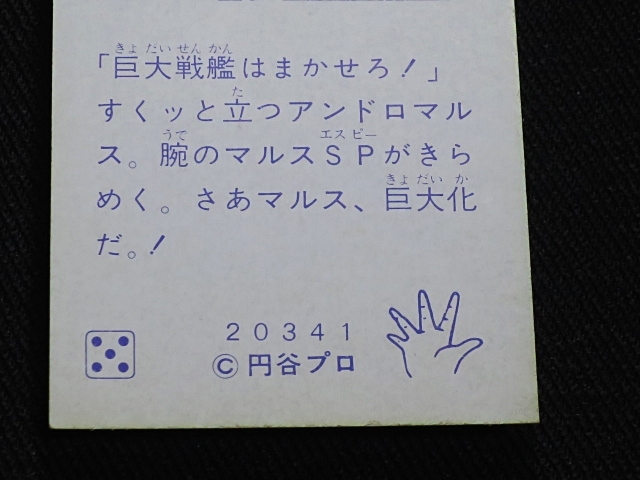 「巨大戦艦はまかせろ！」
すくッと立つアンドロマル
ス。腕のマルスＳＰがきら
めく。さあマルス、巨大化
だ。！
２０３４１
©円谷プロ